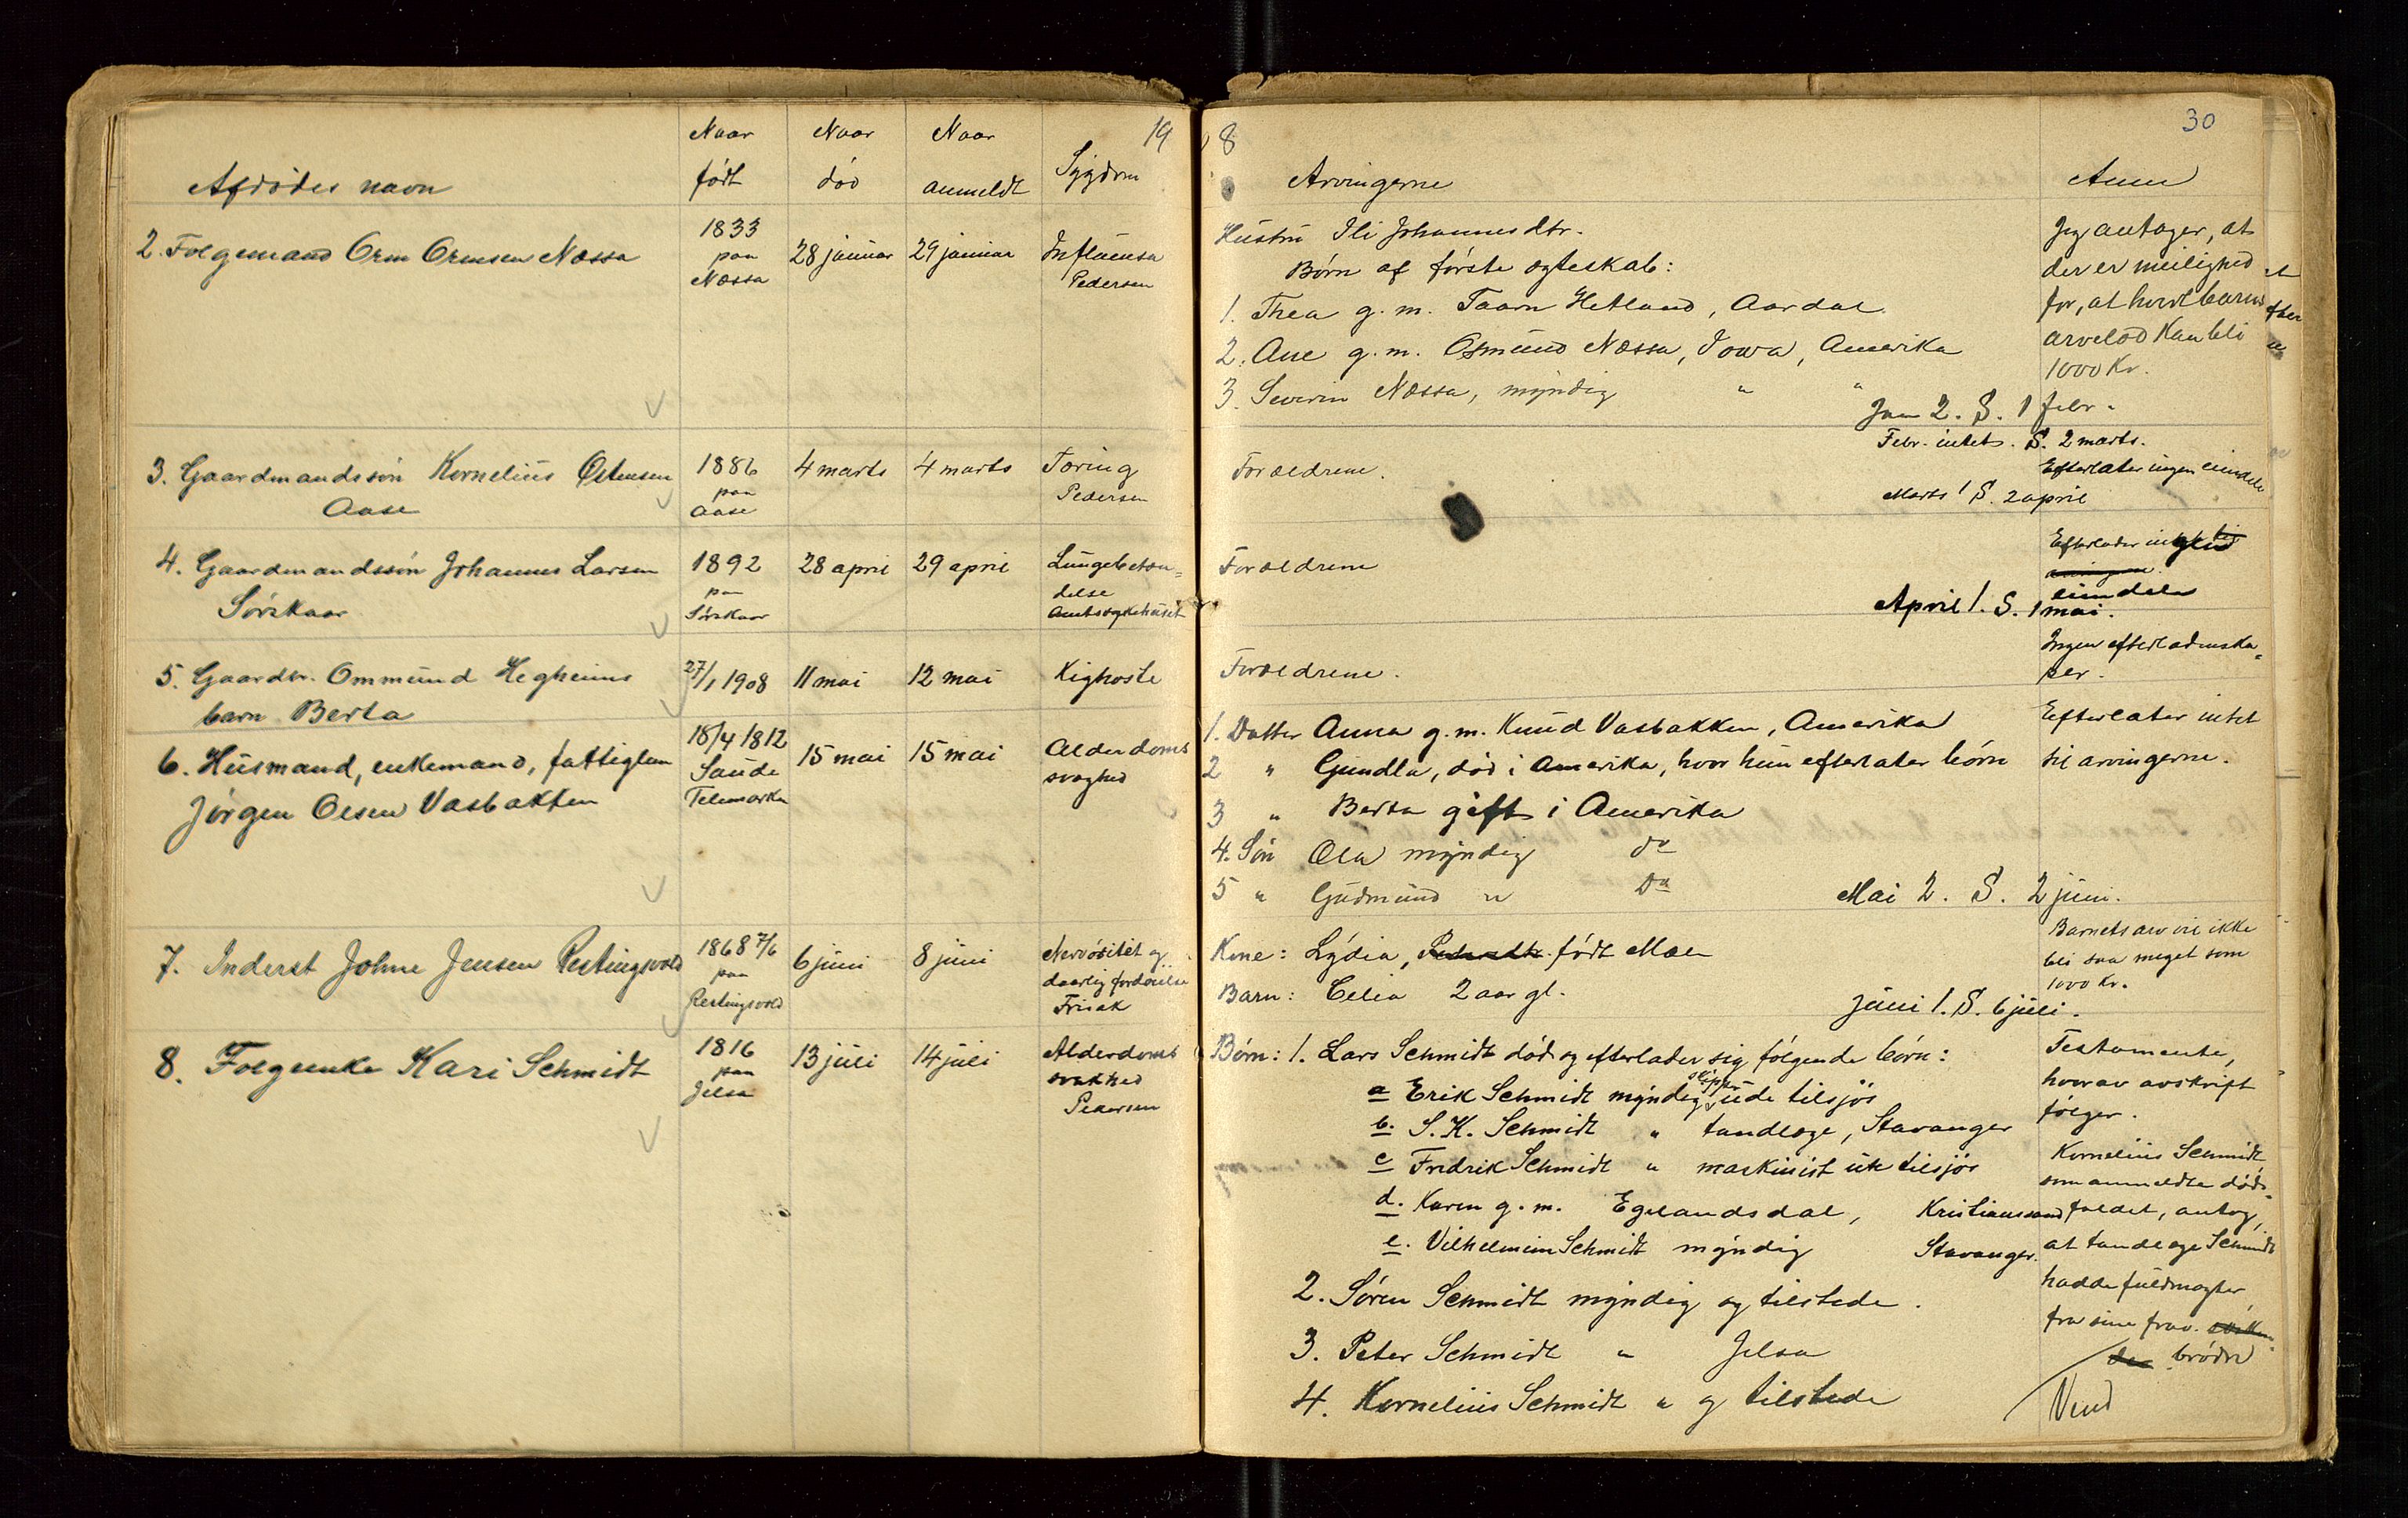 19
Naar Naar Naar
Afdødes navn født død anmeldt Sygdom
2. Folgemand Orm Ormsen Næssa
1833
paa
Næssa
28 januar 29 januar Influensa
Pedersen
3. Gaardmandssøn Kornelius Østensen
Aase
1886
paa
Aase
4 marts 4 marts Tæring
Pedersen
4. Gaardmandssøn Johannes Larsen
Sørskaar
1892
paa
Sørskaar
28 april 29 april Lungebetæn=
delse
Amtssykehuset
5. Gaardbr. Ommund Heghеims
barn Berta
27/1 1908 11 mai 12 mai Kighoste
6. Husmand, enkemand, fattiglem
Jørgen Olsen Vasbakken
18/4 1812
Saude
Telemarken
15 mai 15 mai Alderdoms
svaghed
7. Inderst Johne Jensen Restingsvold
1868 7/6
paa
Restingsvold
6 juni 8 juni Nervøsitet og
daarlig fordøielse
Frisak
8. Folgeenke Kari Schmidt
1816
paa
Jelsa
13 juli 14 juli Alderdoms
svakhed
Pedersen
8 30
Arvingerne Anm
Hustru Ili Johannesdtr.
Børn af første egteskab:
1. Thea g. m. Taarn Hetland, Aardal
2. Ane g. m. Osmund Næssa, Iowa, Amerika
3. Severin Næssa, myndig " "
Jeg antager, at
der er mulighed
for, at hvert barns
arvelod kan bli
1000 Kr.
Jan 2. S. 1 febr.
Febr. intet. S. 2 marts.
Forældrene.
Efterlater ingen eiendele
Marts 1 S. 2 april
Forældrene
Efterlader
eiendele
April 1. S. 1 mai.
Forældrene.
Ingen efterladenska=
per.
1. Datter Anna g. m. Knud Vasbakken, Amerika
2 " Gundla, død i Amerika, hvor hun efterlater børn
3 " Berta gift i Amerika
4. Søn Ola myndig do
5 " Gudmund " Do
Efterlater intet
til arvingerne.
Mai 2. S. 2 juni.
Kone: Lydia, født Mæle
Barn: Celia 2 aar gl.
Barnets arv vil ikke
bli saa meget som
1000 Kr.
Juni 1. S. 6 juli.
Børn: 1. Lars Schmidt død og efterlader sig følgende børn:
a Erik Schmidt myndig skipper ude tilsjøs
b. S. K. Schmidt " tandlæge, Stavanger
c Fredrik Schmidt " maskinist ute tilsjøs
d. Karen g. m. Egelandsdal, Kristianssand
e. Vilhelmine Schmidt myndig Stavanger.
2. Søren Schmidt myndig og tilstede.
3. Peter Schmidt " Jelsa
4. Kornelius Schmidt " og tilstede
Testamente,
hvorav avskrift
følger.
Kornelius Schmidt
som anmeldte døds=
faldet, antog,
at tandlæge Schmidt
hadde fuldmagter
fra sine frav.
brødre
Vend